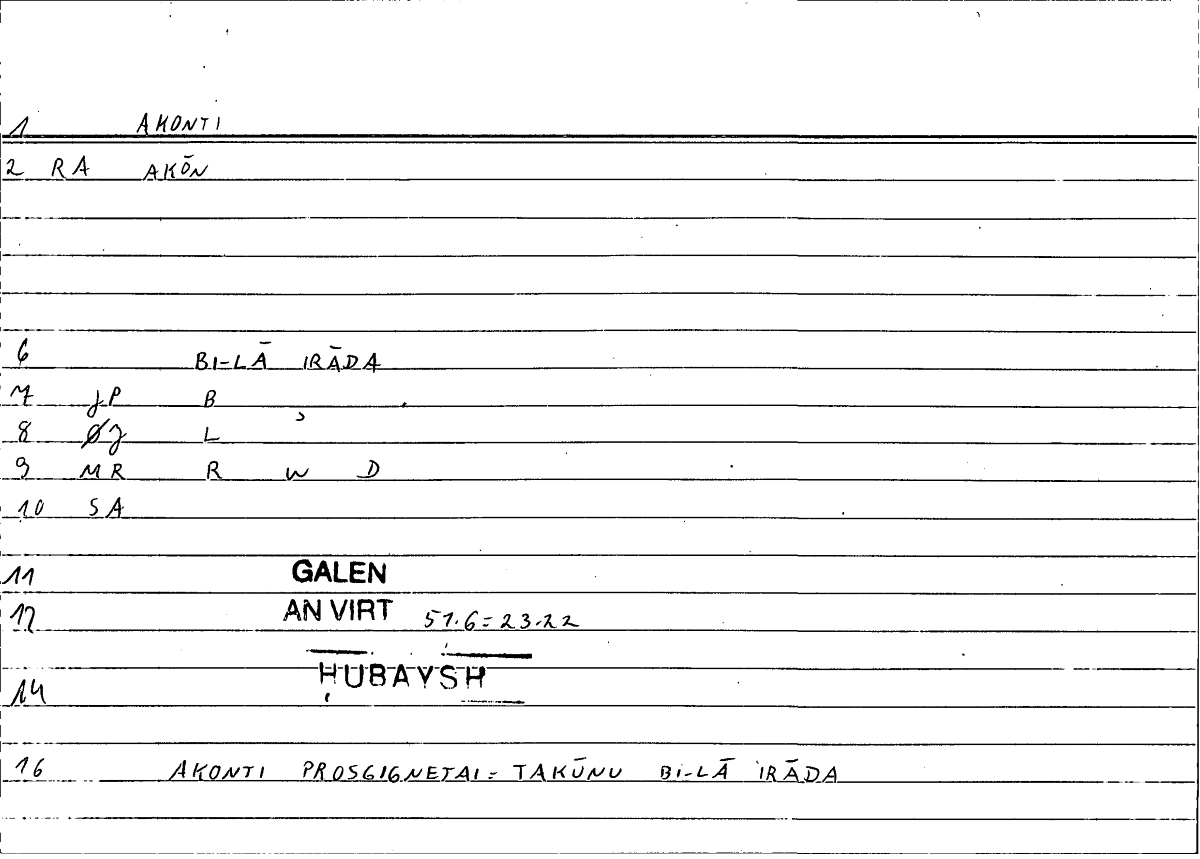 1 AKONTI
2 RA AKŌN
6 BI-LĀ IRĀDA
7 JP B
8 ØJ L ʾ
9 MR R W D
10 SA
11 GALEN
12 AN VIRT 51.6=23.22
ḤUBAYSH
14
16 AKONTI PROSGIGNETAI= TAKŪNU BI-LĀ IRĀDA